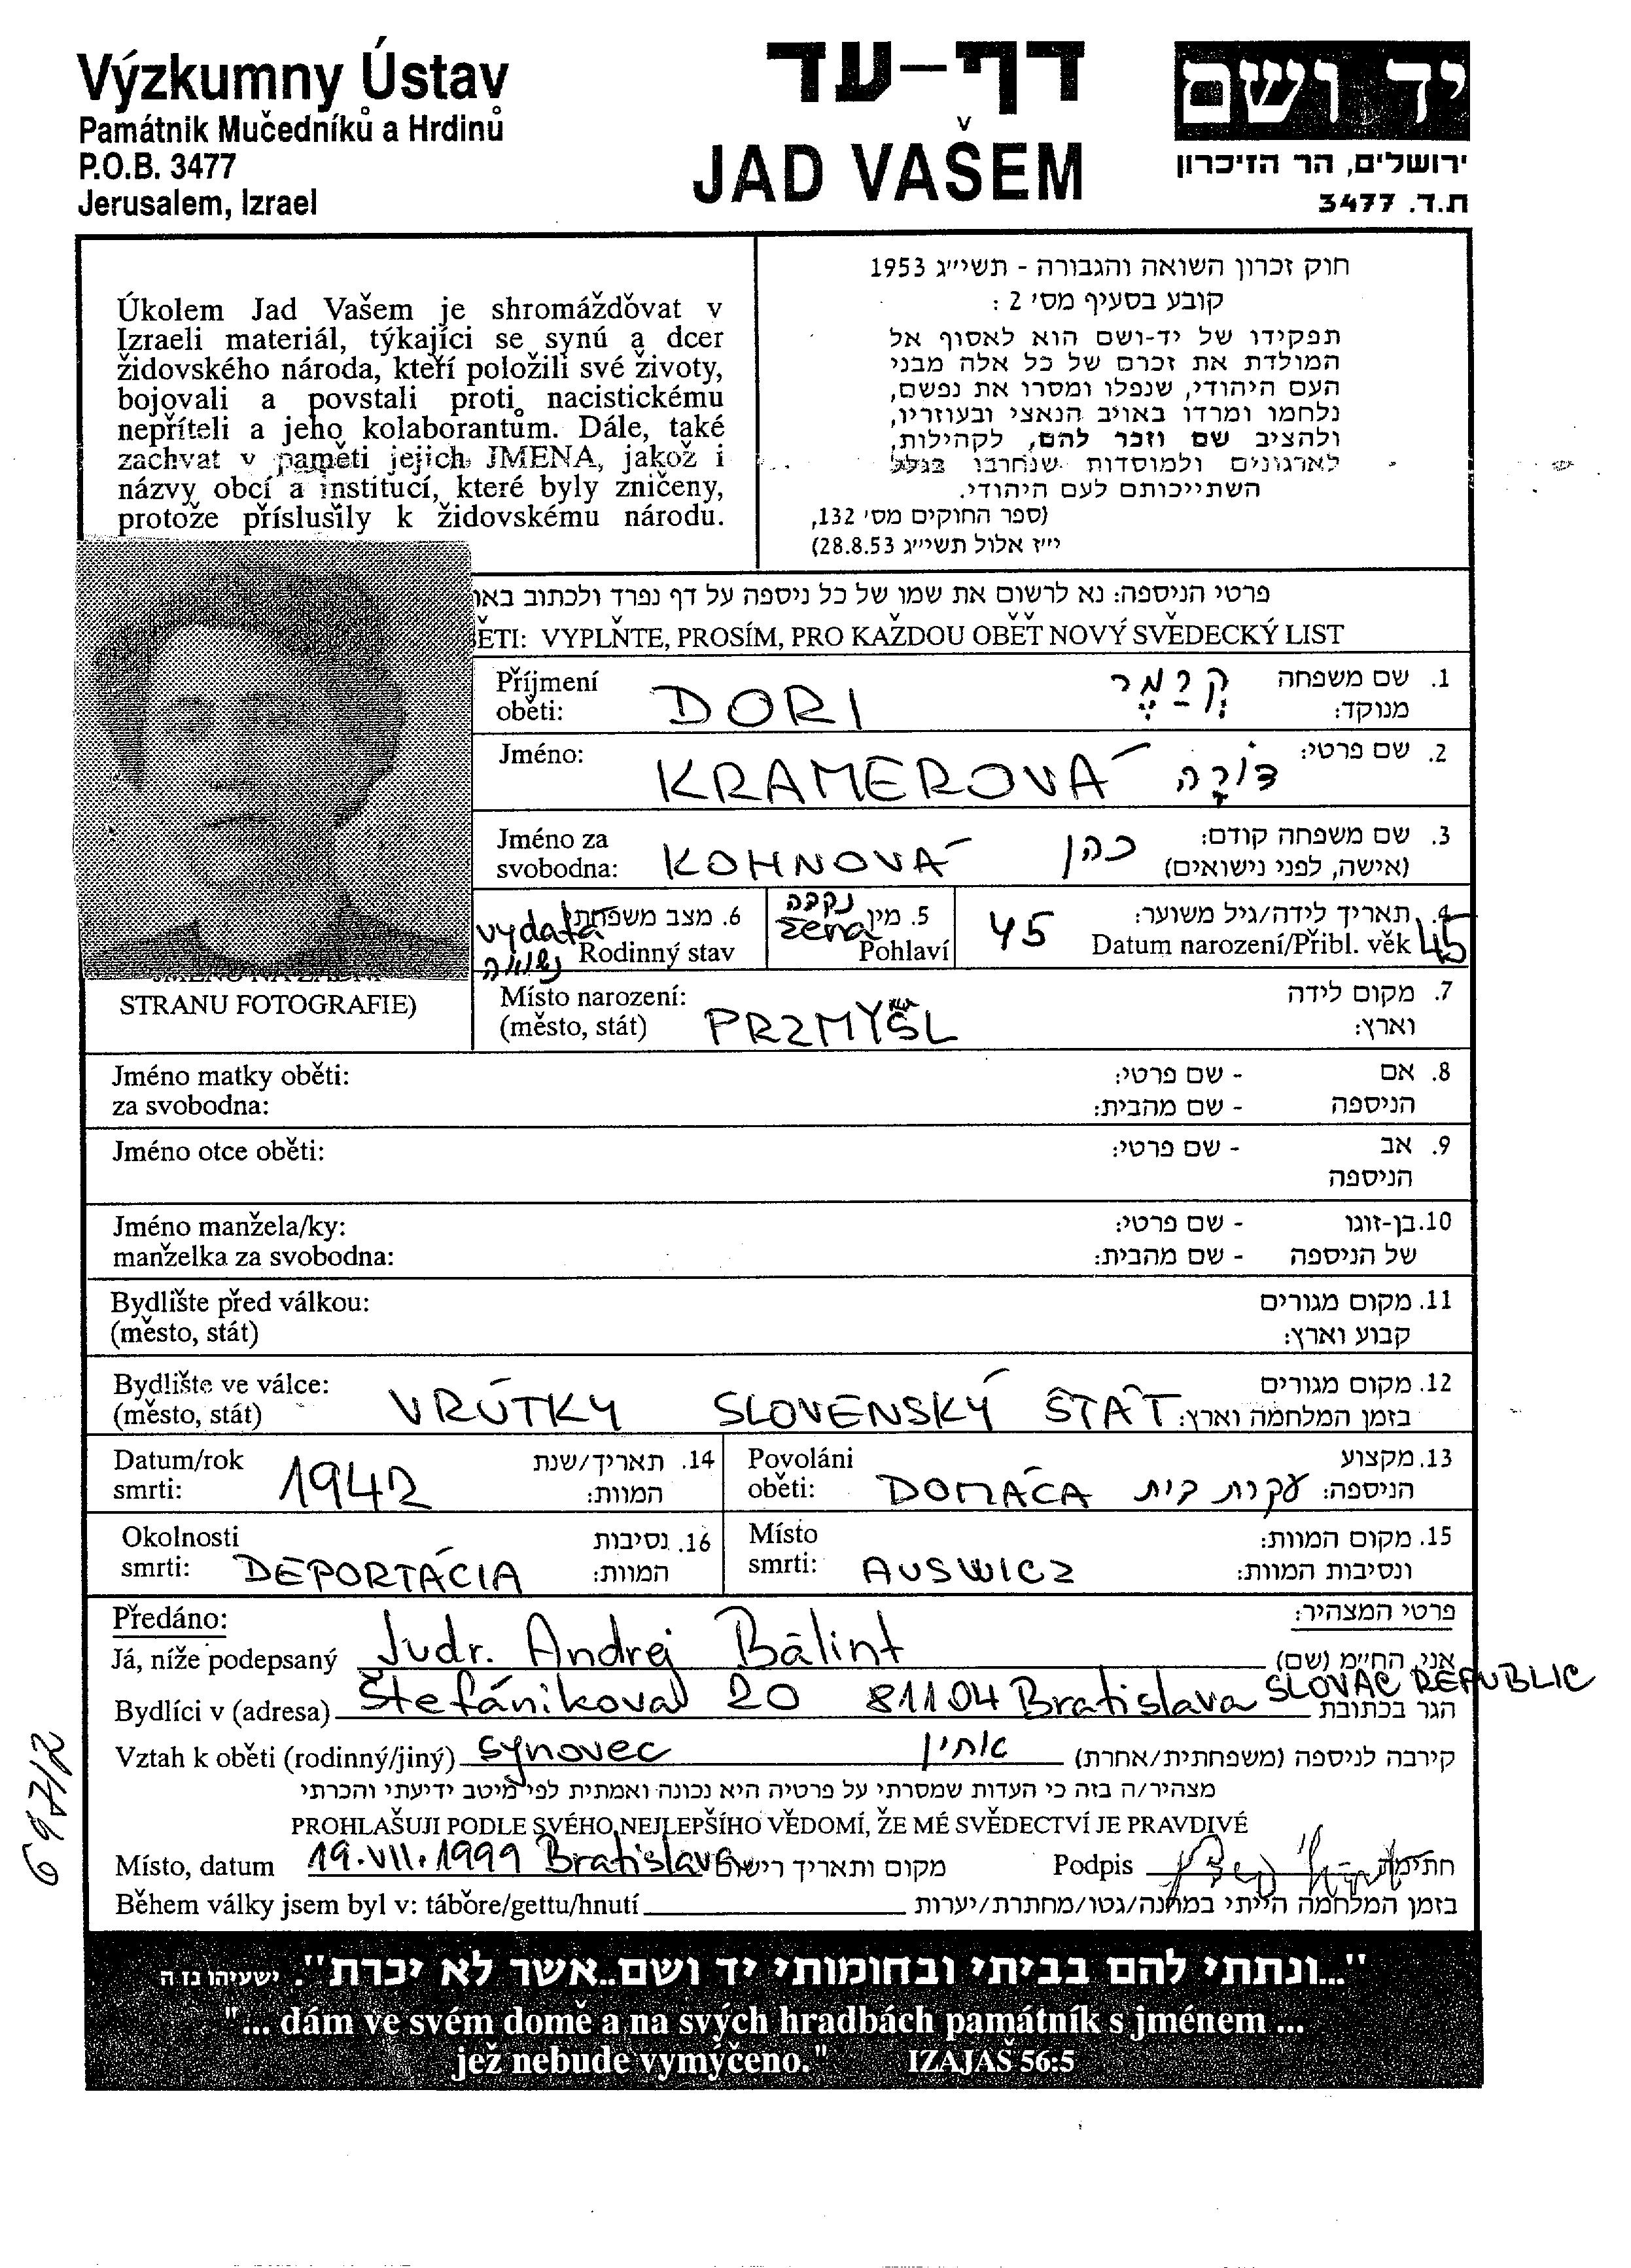 Výzkumny Ústav
Památnik Mučedníků a Hrdinů
P.O.B. 3477
Jerusalem, Izrael
דף-עד
JAD VAŠEM
יד ושם
ירושלים, הר הזיכרון
ת.ד. 3477
Úkolem Jad Vašem je shromáždǒvat v
Izraeli materiál, týkajíci se synú a dcer
židovského národa, kteří položili své životy,
bojovali a povstali proti nacistickému
nepříteli a jeho kolaborantům. Dále, také
zachvat v paměti jejich JMENA, jakož i
názvy obcí a institucí, které byly zničeny,
protože příslusily k židovskému národu.
חוק זכרון השואה והגבורה - תשי״ג 1953
קובע בסעיף מס׳ 2 :
תפקידו של יד-ושם הוא לאסוף אל
המולדת את זכרם של כל אלה מבני
העם היהודי, שנפלו ומסרו את נפשם,
נלחמו ומרדו באויב הנאצי ובעוזריו,
ולהציב שם וזכר להם, לקהילות,
לארגונים ולמוסדות שנחרבו בגלל
השתייכותם לעם היהודי.
(ספר החוקים מס׳ 132,
י״ז אלול תשי״ג 28.8.53)
פרטי הניספה: נא לרשום את שמו של כל ניספה על דף נפרד ולכתוב באו
ĚTI: VYPLŇTE, PROSÍM, PRO KAŽDOU OBĚŤ NOVÝ SVĚDECKÝ LIST
Příjmení
oběti: DORI קְרַמֶר 1. שם משפחה
מנוקד:
Jméno: KRAMEROVÁ דוֹרָה 2. שם פרטי:
Jméno za
svobodna: KOHNOVÁ כהן 3. שם משפחה קודם:
(אישה, לפני נישואים)
vydatá נשואה 6. מצב משפחתי
Rodinný stav
נקבה žena 5. מין
Pohlaví
45 4. תאריך לידה/גיל משוער:
Datum narození/Přibl. věk 45
STRANU FOTOGRAFIE)
Místo narození:
(město, stát) PRZMYŠL 7. מקום לידה
וארץ:
Jméno matky oběti: - שם פרטי: 8. אם
za svobodna: - שם מהבית: הניספה
Jméno otce oběti: - שם פרטי: 9. אב
הניספה
Jméno manžela/ky: - שם פרטי: 10. בן-זוגו
manželka za svobodna: - שם מהבית: של הניספה
Bydlište před válkou: 11. מקום מגורים
(město, stát) קבוע וארץ:
Bydlište ve válce: 12. מקום מגורים
(město, stát) VRÚTKY SLOVENSKÝ ŠTÁT בזמן המלחמה וארץ:
Datum/rok 14. תאריך/שנת
smrti: 1942 המוות:
Povoláni 13. מקצוע
oběti: DOMÁCA עקרת בית הניספה:
Okolnosti 16. נסיבות
smrti: DEPORTÁCIA המוות:
Místo 15. מקום המוות:
smrti: AUSWICZ ונסיבות המוות:
Předáno: פרטי המצהיר:
Já, níže podepsaný Judr. Andrej Bálint אני, החי״מ (שם)
Bydlíci v (adresa) Štefánikova 20 81104 Bratislava SLOVAC REPUBLIC הגר בכתובת
Vztah k oběti (rodinný/jiný) synovec אחיין קירבה לניספה (משפחתית/אחרת)
מצהיר/ה בזה כי העדות שמסרתי על פרטיה היא נכונה ואמתית לפי מיטב ידיעתי והכרתי
PROHLAŠUJI PODLE SVÉHO NEJLEPŠÍHO VĚDOMÍ, ŽE MÉ SVĚDECTVÍ JE PRAVDIVÉ
Místo, datum 19.VII.1999 Bratislava מקום ותאריך רישום Podpis חתימה
Během války jsem byl v: táboře/gettu/hnutí בזמן המלחמה הייתי במחנה/גטו/מחתרת/יערות
697/2
"...ונתתי להם בביתי ובחומותי יד ושם..אשר לא יכרת". ישעיהו נו ה
"... dám ve svém domě a na svých hradbách památník s jménem ...
jež nebude vymýčeno." IZAJAŠ 56:5